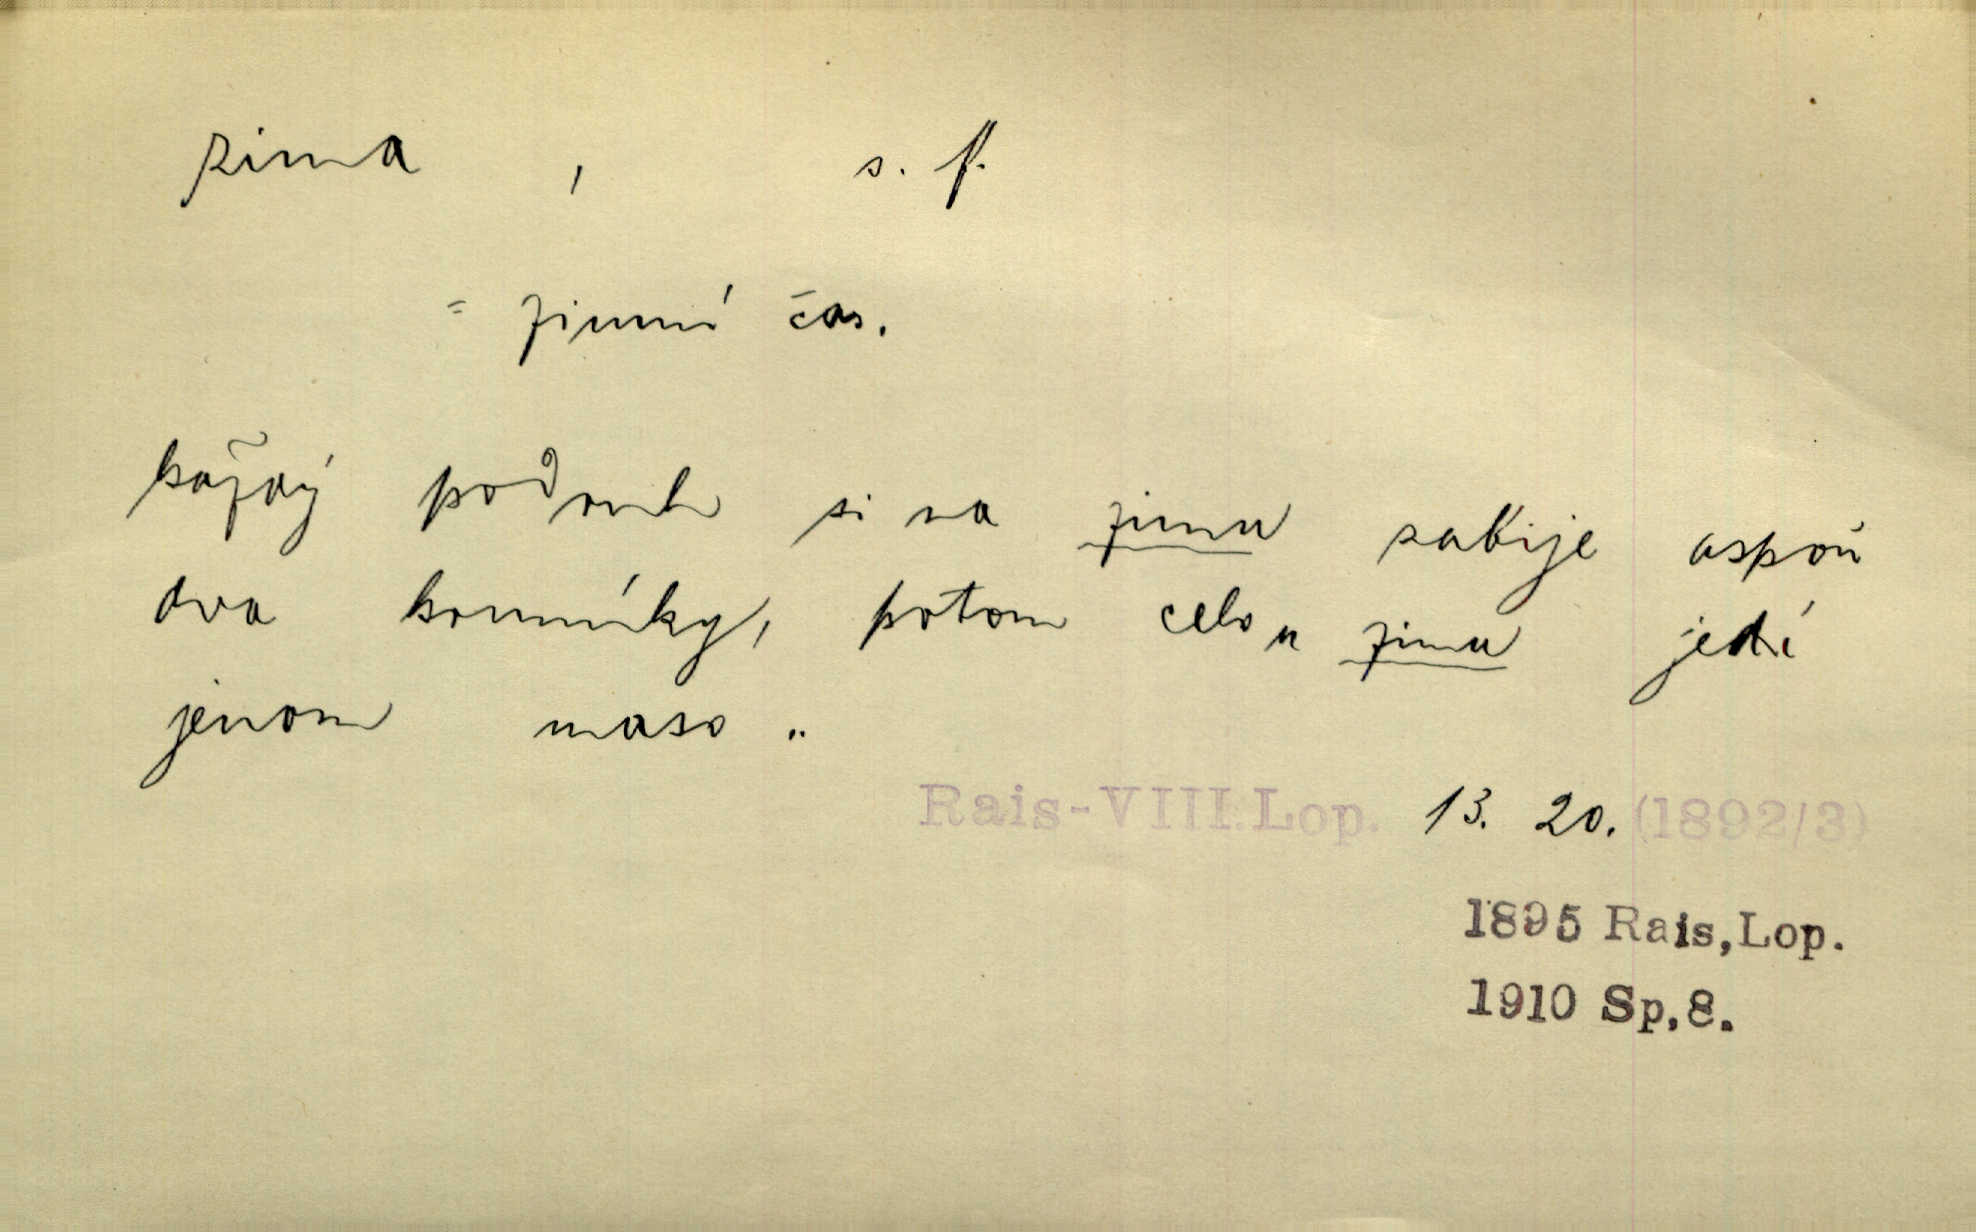 zima , s. f.
= zimní čas.
každý podruh si na zimu zabije aspoň
dva komníky, potom celou zimu jedí
jenom maso ..
Rais-VIII.Lop. 13. 20. (1892/3)
1895 Rais,Lop.
1910 Sp.8.